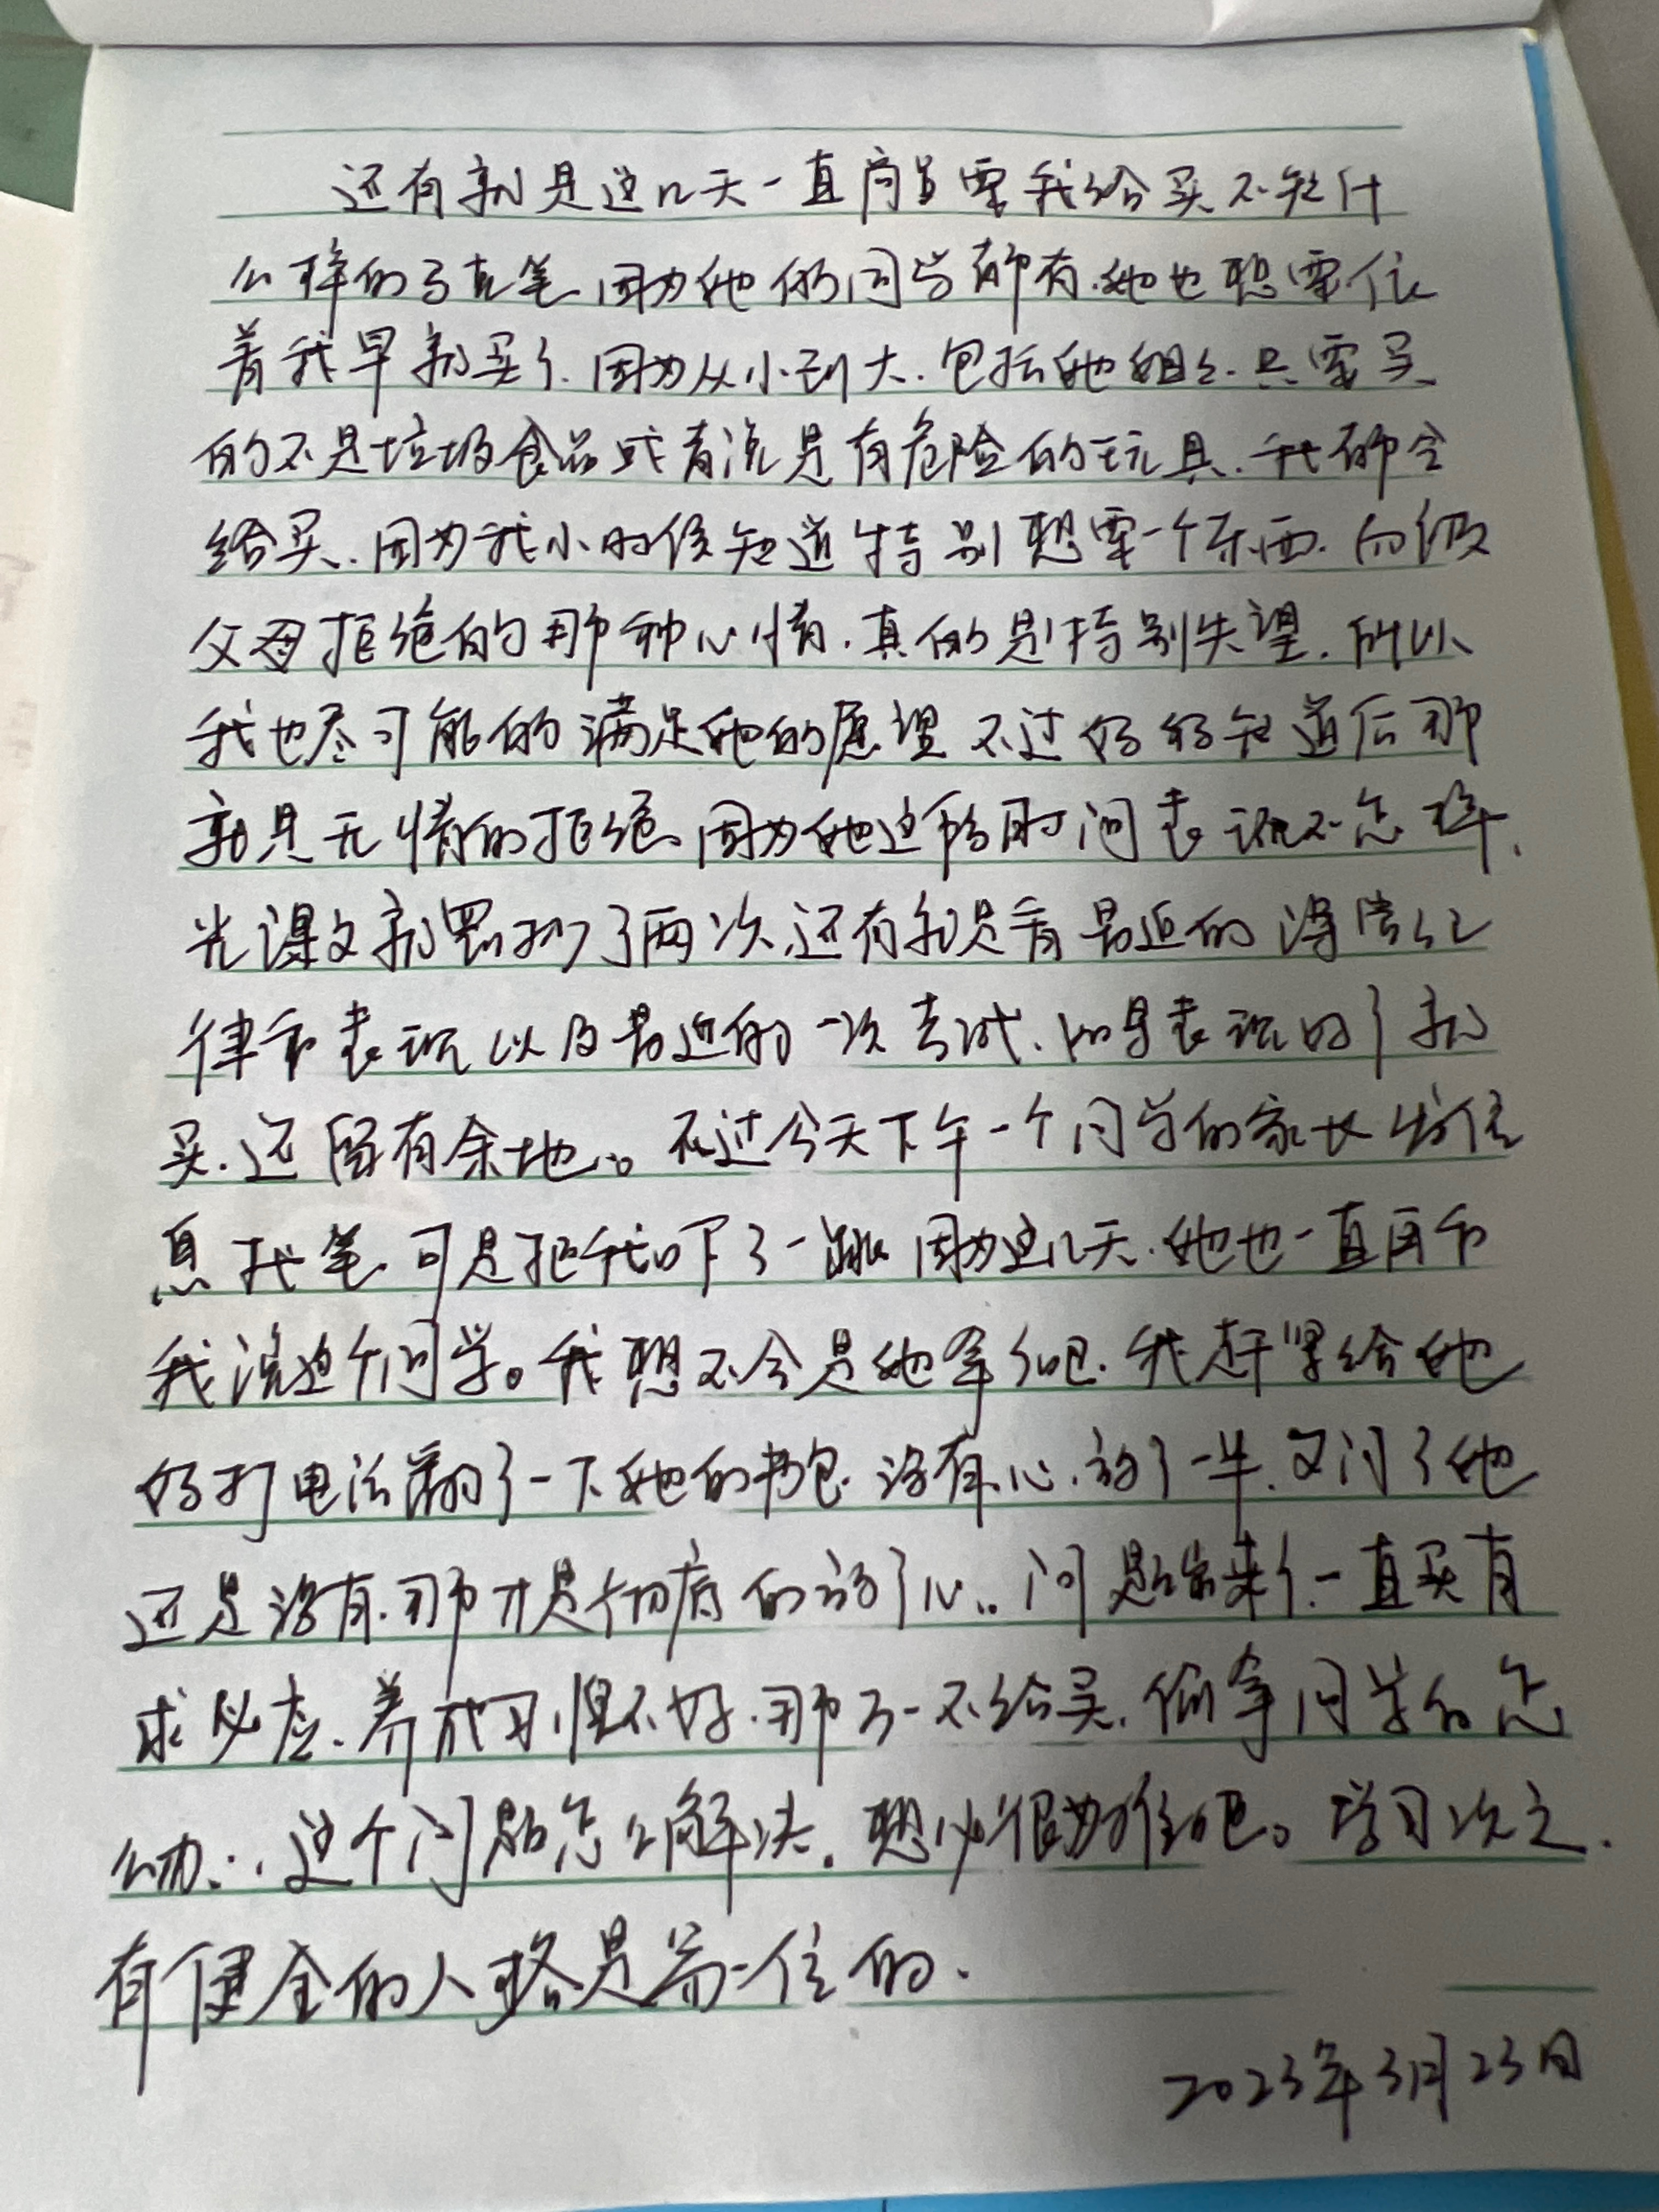 还有就是这几天一直嚷要我给买不知什
么样的马克笔,因为她的同学都有.她也想要依
着我早就买了.因为从小到大.包括她姐姐.只要买
的不是垃圾食品或者说是有危险的玩具.我都会
给买.因为我小时候知道特别想要一个东西.而被
父母拒绝的那种心情.真的是特别失望.所以
我也尽可能的满足她的愿望 不过妈妈知道后那
就是无情的拒绝.因为她这段时间表现不怎样.
光课文就罚抄了两次.还有就是看最近的
表现以及最近的一次考试.如果表现好了就
买.还留有余地。不过今天下午一个同学的家长发信
息找笔.可是把我吓了一跳 因为这几天.她也一直再和
我说这个同学。我想不会是她拿了吧.我赶紧给她
妈打电话翻了一下她的书包.没有心.放了一半.又问了她
还是没有.那才是彻底的放了心..问题出来了.一直买有
求必应.养成习惯不好.那万一不给买.偷拿同学的怎
么办..这个问题怎么解决.想必很为难吧。学习次之.
有健全的人格是第一位的.
2023年3月23日